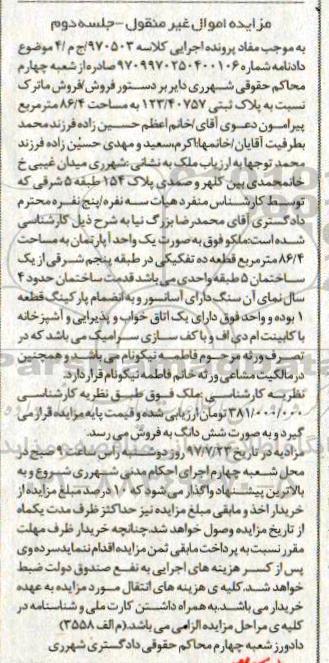 مزایده اموال غیر منقول -جلسه دوم
به موجب مفاد پرونده اجرایی کلاسه ۹۷۰۵۰۳/ج م /۴ موضوع
دادنامه شماره ۹۷۰۹۹۷۰۲۵۰۴۰۰۱۰۶ صادره از شعبه چهارم
محاکم حقوقی شهرری دایر بر دستور فروش/فروش ماترک
نسبت به پلاک ثبتی ۱۲۳/۴۰۷۵۷ به مساحت ۸۶/۴ مترمربع
پیرامون دعوی آقای/خانم اعظم حسین زاده فرزند محمد
بطرفیت آقایان/خانمها:اکرم،سعید و مهدی حسین زاده فرزند
محمد توجها به ارزیاب ملک به نشانی :شهرری میدان غیبی خ
خانمحمدی بین کلهر و صمدی پلاک ۱۵۴ طبقه ۵ شرقی که
توسط کارشناس منفرد هیات سه نفره/پنج نفره محترم
دادگستری آقای محمدرضا بزرگ نیا به شرح ذیل کارشناسی
شده است:ملکو فوق به صورت یک واحد آپارتمان به مساحت
۸۶/۴ مترمربع قطعه ده تفکیکی در طبقه پنجم شرقی از یک
ساختمان ۵ طبقه واحدی می باشد قدمت ساختمان حدود ۴
سال نمای آن سنگ دارای آسانسور و به انضمام پارکینگ قطعه
۱ بوده و واحد فوق دارای یک اتاق خواب و پذیرایی و آشپزخانه
با کابینت ام دی اف و با کف سازی سرامیک می باشد که در
تصرف ورثه مرحوم فاطمه نیکونام می باشد و همچنین
در مالکیت مشاعی ورثه خانم فاطمه نیکونام قرار دارد
نظریه کارشناسی :ملک فوق طبق نظریه کارشناسی
۳۸۱/۰۰۰/۰۰۰ تومان ارزیابی شده و قیمت پایه مزایده قرار می
گیرد و به صورت شش دانگ به فروش می رسد.
مزایده در تاریخ ۹۷/۷/۲۳ روز دوشنبه راس ساعت ۹ صبح در
محل شعبه چهارم اجرای احکام مدنی شهرری شروع و به
بالاترین پیشنهاد واگذار می شود که ۱۰ درصد مبلغ مزایده از
خریدار اخذ و مابقی مبلغ مزایده نیز حداکثر ظرف مدت یکماه
از تاریخ مزایده وصول خواهد شد،چنانچه خریدار ظرف مهلت
مقرر نسبت به پرداخت مابقی ثمن مزایده اقدام ننماید سپرده وی
پس از کسر هزینه های اجرایی به نفع صندوق دولت ضبط
خواهد شد.کلیه ی هزینه های انتقال مورد مزایده به عهده
خریدار می باشد.به همراه داشتن کارت ملی و شناسنامه در
کلیه ی مراحل مزایده الزامی می باشد.(م الف ۳۵۵۸)
دادورز شعبه چهارم محاکم حقوقی دادگستری شهرری